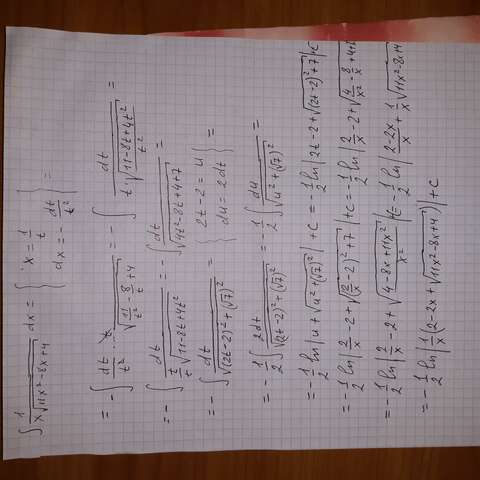 ∫ 1/(x√(11x²-8x+4)) dx = { x = 1/t, dx = -dt/t² } =
= -∫ dt/t² · t/√(11/t² - 8/t + 4) = -∫ dt/(t·√((11-8t+4t²)/t²)) =
= -∫ dt/(t/t √(11-8t+4t²)) = -∫ dt/√(4t²-8t+4+7) =
= -∫ dt/√((2t-2)²+(√7)²) { 2t-2=u, du=2dt } =
= -1/2 ∫ 2dt/√((2t-2)²+(√7)²) = -1/2 ∫ du/√(u²+(√7)²) =
= -1/2 ln|u+√(u²+(√7)²)|+C = -1/2 ln|2t-2+√((2t-2)²+7)|+C
= -1/2 ln|2/x-2+√((2/x-2)²+7)|+C = -1/2 ln|2/x-2+√(4/x²-8/x+4+
= -1/2 ln|2/x-2+√((4-8x+11x²)/x²)|+C = -1/2 ln|(2-2x)/x+1/x √(11x²-8x+4
= -1/2 ln|1/x(2-2x+√(11x²-8x+4))|+C